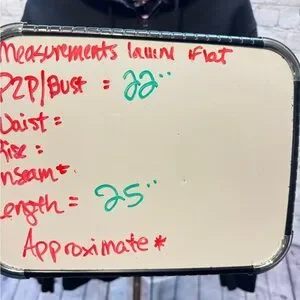 Measurements laying flat
P2P/Bust = 22"
Waist =
Rise =
Inseam =
Length = 25"
Approximate *